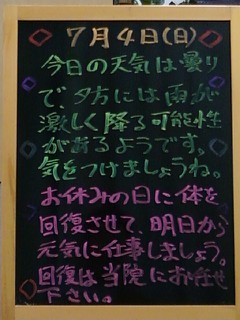 7月4日(日)
今日の天気は曇り
で、夕方には雨が
激しく降る可能性
があるようです。
気をつけましょうね。
お休みの日に体を
回復させて、明日から
元気に仕事しましょう。
回復は当院にお任せ
下さい。